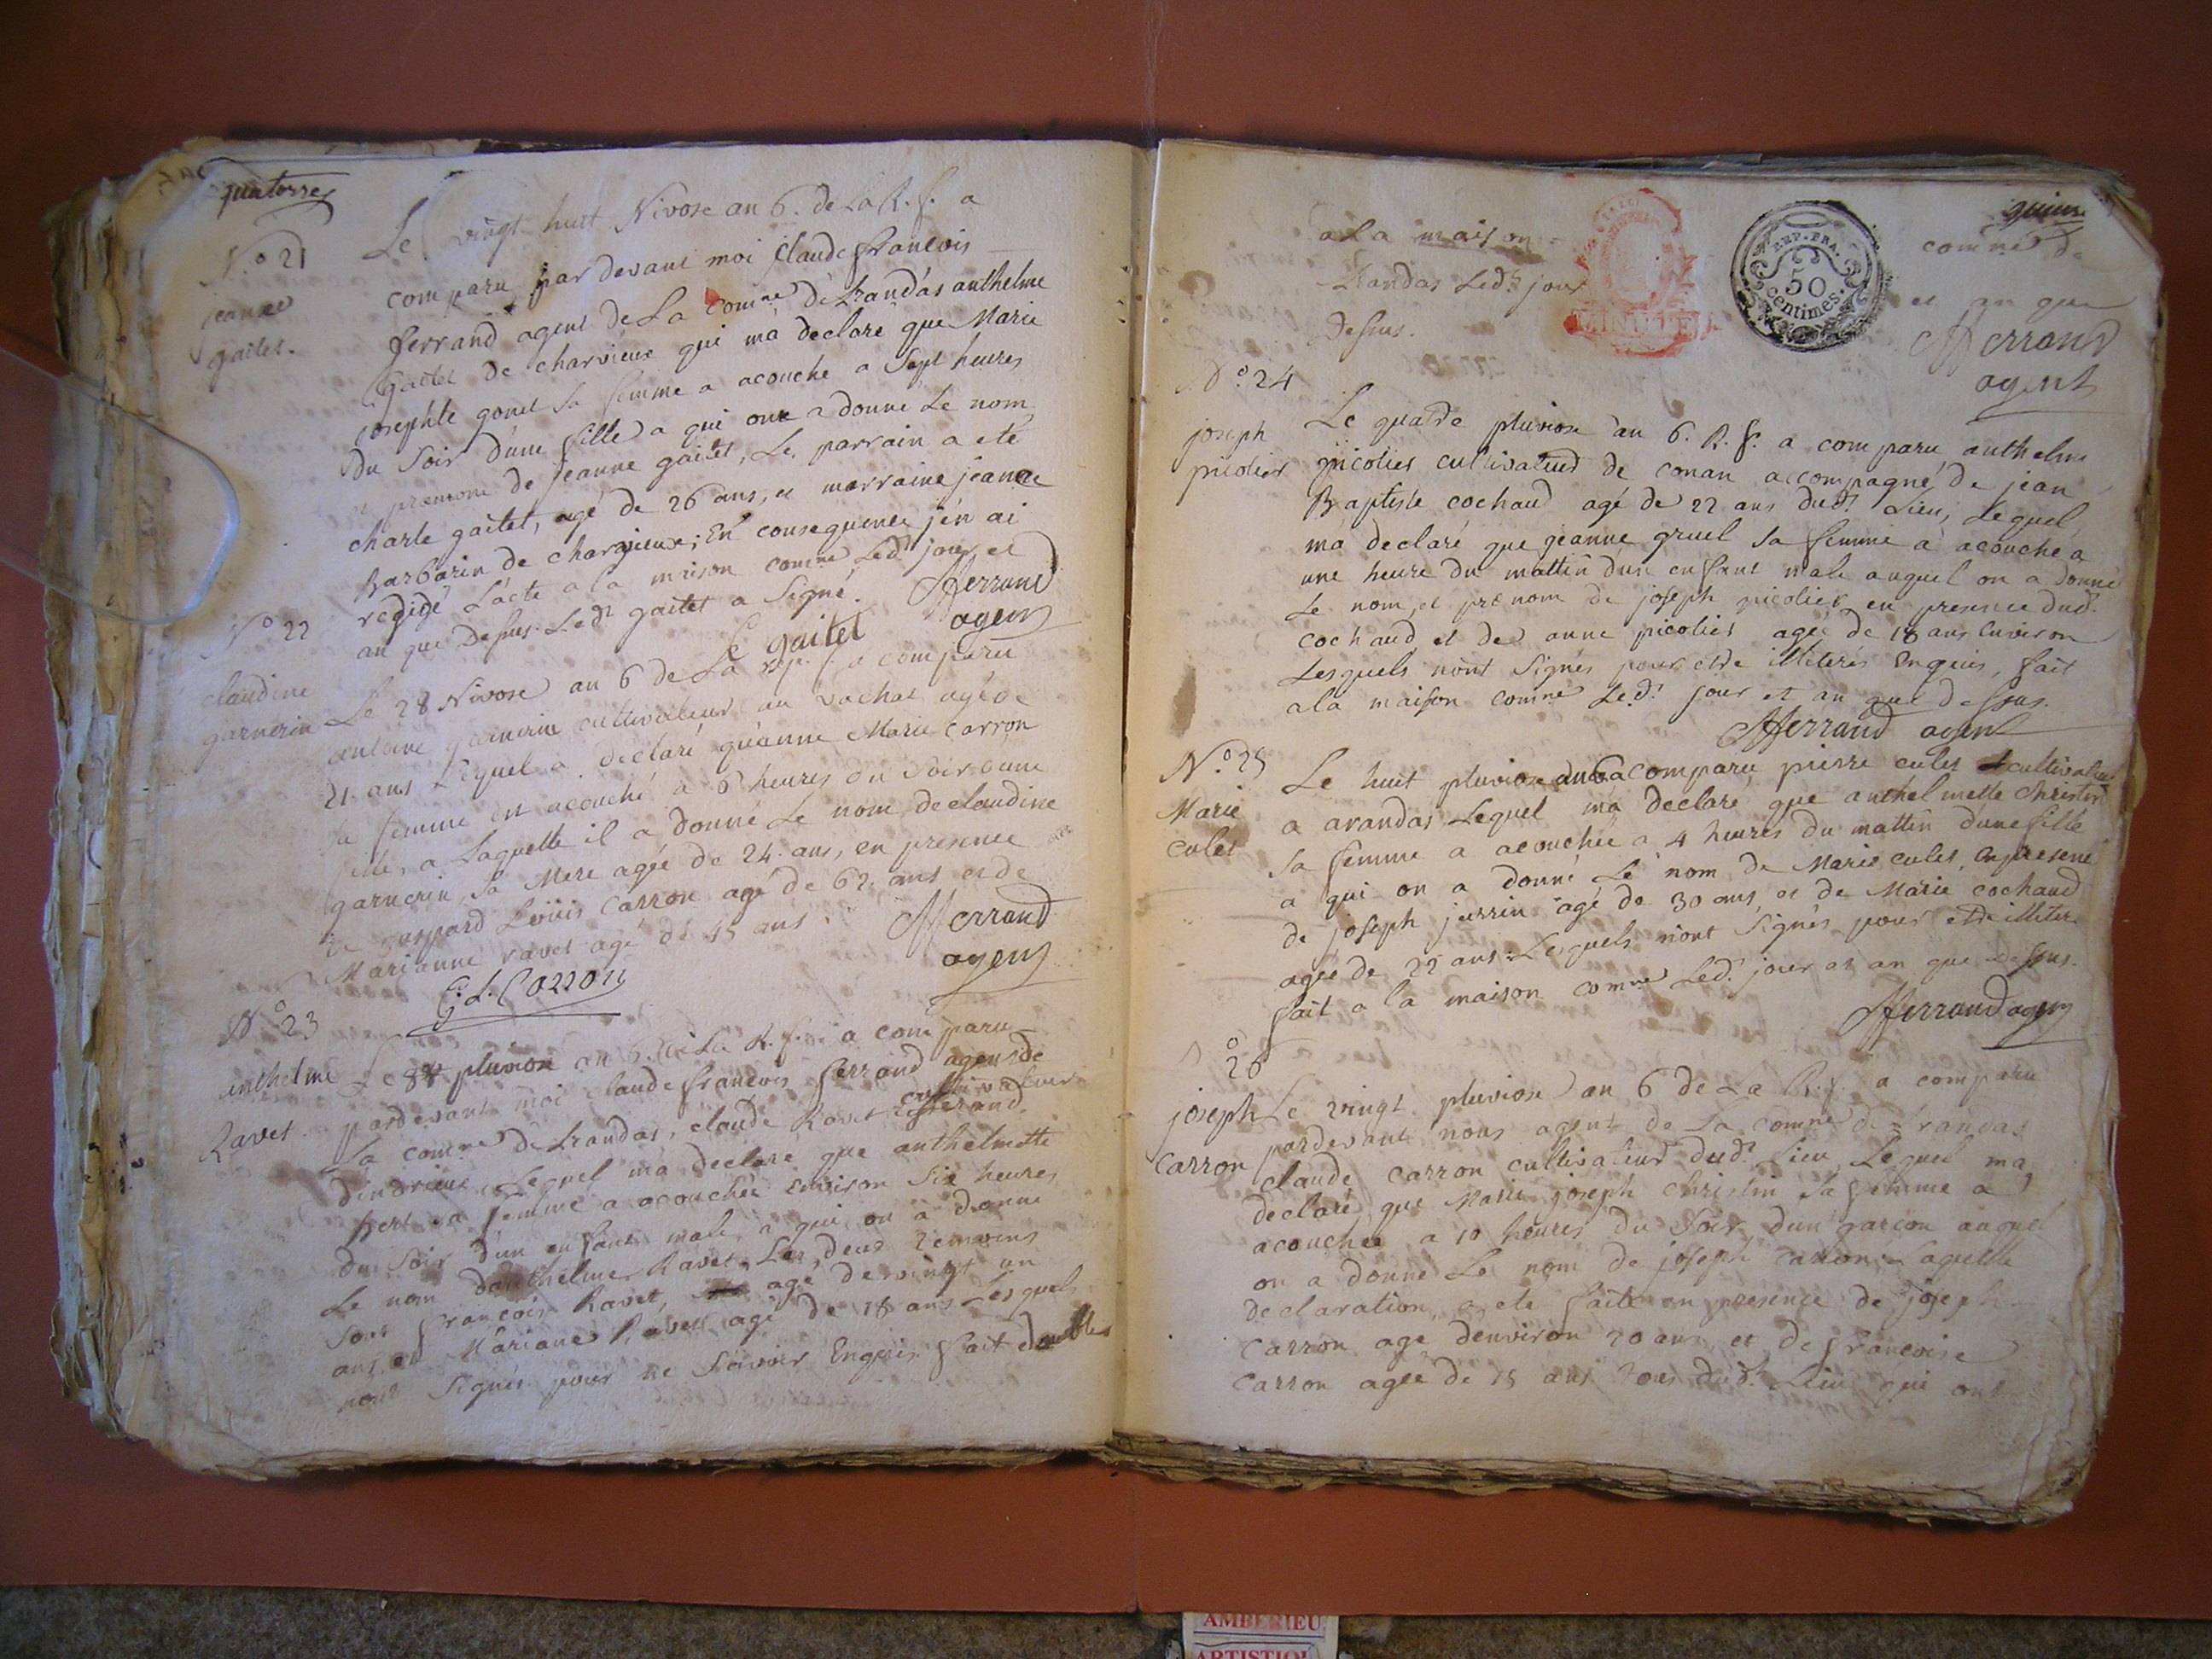 quatorze
N.o 21
jeanne
gaitet.
Le vingt huit Nivose an 6. de La R. f. a
comparu par devant moi Claude francois
ferrand agent de La Comne d'Arandas anthelme
Gaitet de charvieux qui ma declaré que Marie
josephte gonet Sa femme a acouché a Sept heures
du Soir d'une fille a qui on a donné Le nom
et prenom de jeanne gaitet, Le parrain a eté
charle gaitet, agé de 26 ans, et marraine jeanne
Barbarin de charvieux; En consequence j'en ai
redigé L'acte a la maison comne Led.t jour et
an que Dessus. Led.t gaitet a Signé.
C gaitet
fferrand
agent
N.o 22
claudine
garnerin
Le 28 Nivose an 6 de La rep. f. a comparu
antoine garnerin cultivateur au vachat agé de
21 ans Lequel a declaré qu'anne Marie Carron
sa femme est acouché a 6 heures du Soir d'une
fille, a Laquelle il a donné Le nom de claudine
garnerin, Sa Mere agée de 24 ans, en presence
de gaspard Louis Carron agé de 62 ans et de
Marianne ravet agé de 45 ans.
G. L. Carron
fferrand
agent
N.o 23
anthelme
Ravet
Le 8 pluviose an 6. de La R. f. a comparu
pardevant moi claude francois ferrand agent de
La comne d'Arandas, claude Ravet cultivateur
d'indrieux, Lequel ma declaré que anthelmette
ferrand
sa femme a acouchée environ Six heures
du Soir d'un enfant male, a qui on a donné
Le nom d'anthelme Ravet, Les deux temoins
Sont francois Ravet, agé de vingt un
ans, et Mariane Ravet agé de 18 ans Lesquels
n'ont Signés pour ne Sçavoir Enquis fait doubles
quinze
a La maison comne d'
Arandas Led.t jour et an que
Dessus.
REP. FRA.
50
centimes.
MINUTE
fferrand
agent
N.o 24
joseph
picolier
Le quatre pluviose an 6. R. f. a comparu anthelme
picolier cultivateur de conan accompagné de jean
Baptiste cochaud agé de 22 ans dud.t Lieu, Lequel
m'a declaré que jeanne gruel Sa femme a acouché a
une heure du mattin d'un enfant male auquel on a donné
Le nom et prenom de joseph picolier en presence dud.t
cochaud et de anne picolier agée de 18 ans Environ
Lesquels n'ont Signés pour etre illiterés Enquis, fait
a la maison comne Led.t jour et an que dessus.
fferrand agent
N.o 25
Marie
culet
Le huit pluviose an 6 a comparu pierre culet cultivateur
a arandas Lequel m'a declaré que anthelmette Christin
Sa femme a acouchée a 4 heures du mattin d'une fille
a qui on a donné Le nom de Marie culet, En presence
de joseph juvrin agé de 30 ans, et de Marie cochaud
agée de 22 ans. Lesquels n'ont Signés pour etre illiteré
fait a la maison comne Led.t jour et an que Dessus.
fferrand agent
N.o 26
joseph
Carron
Le vingt pluviose an 6 de La R. f. a comparu
pardevant nous agent de La comne d'Arandas
claude Carron cultivateur dud.t Lieu, Lequel m'a
declaré que Marie joseph Christin Sa femme a
acouchée a 10 heures du Soir d'un garcon auquel
on a donné Le nom de joseph Carron, Laquelle
declaration a eté faite en presence de joseph
Carron agé d'environ 20 ans et de francoise
Carron agée de 15 ans tous dud.t Lieu qui ont
AMBERIEU
ARTISTIQ